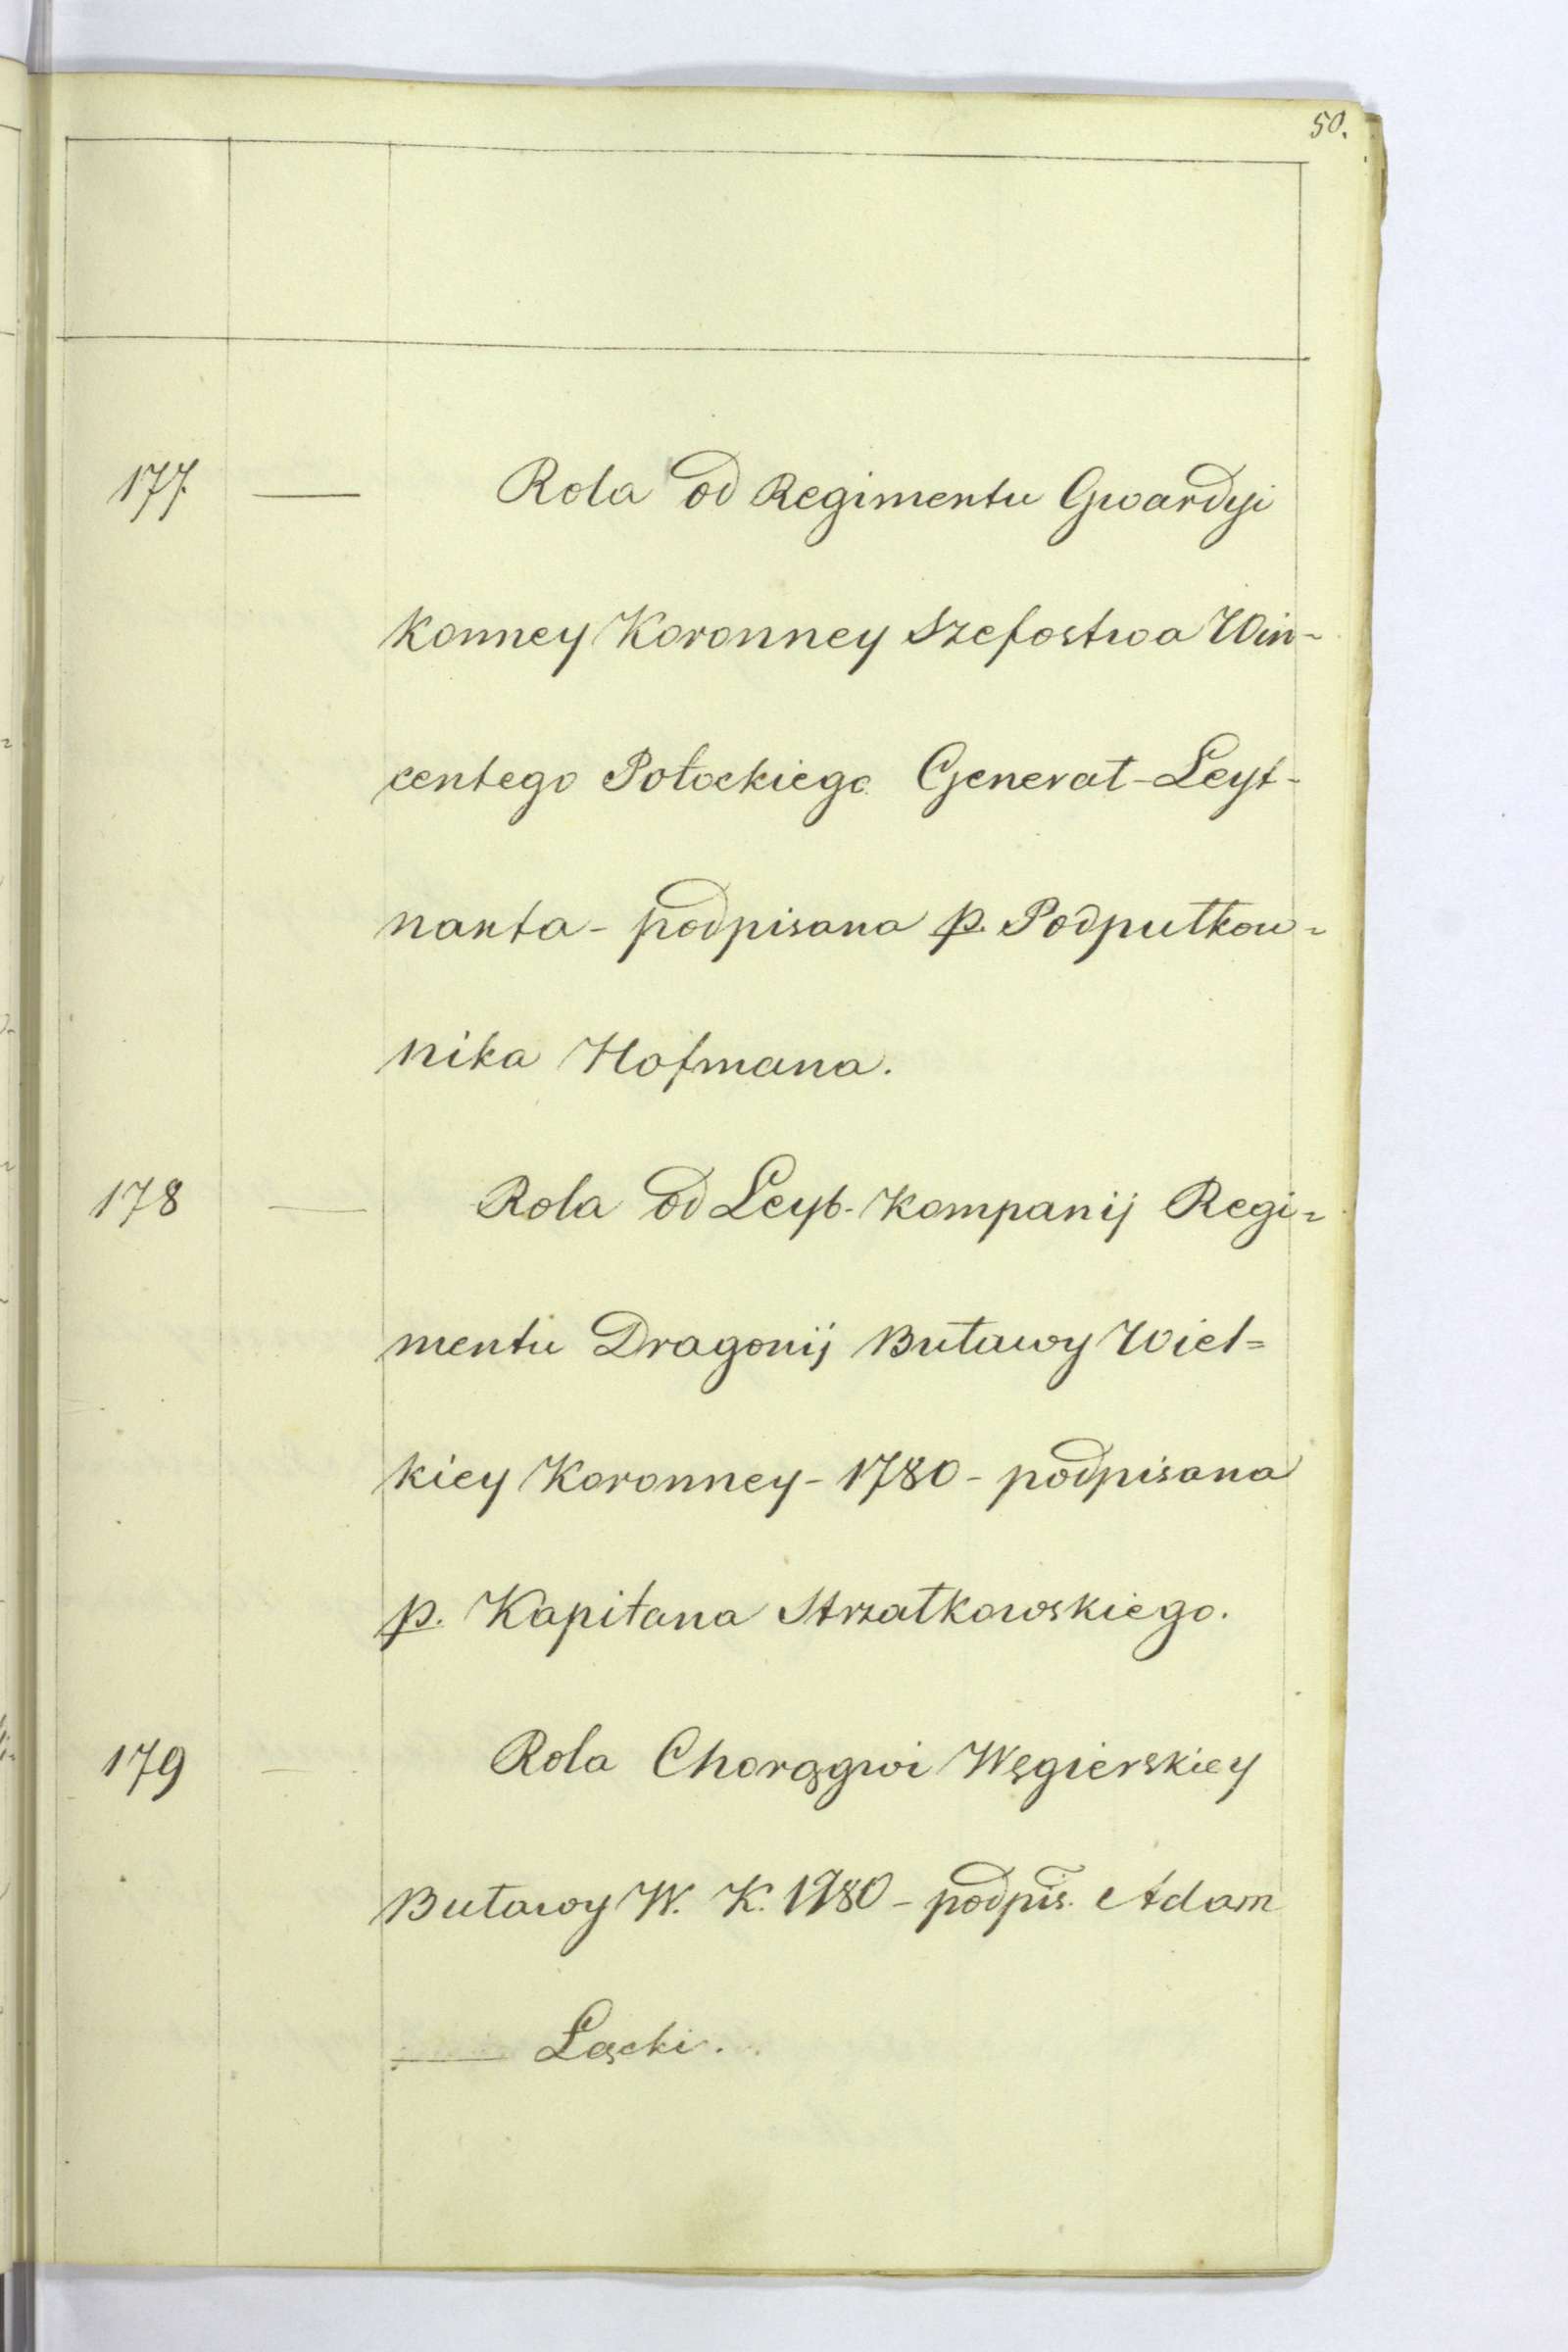 50.
177. — Rola od Regimentu Gwardyi
konney Koronney Szefostwa Win-
centego Potockiego Generał-Leyt-
nanta - podpisana p. Podpułkow-
nika Hofmana.
178 — Rola od Leyb-Kompanij Regi-
mentu Dragonij Buławy Wiel=
kiey Koronney - 1780 - podpisana
p. Kapitana Strzałkowskiego.
179 — Rola Chorągwi Węgierskiey
Buławy W. K. 1780 - podpis. Adam
— Łącki.